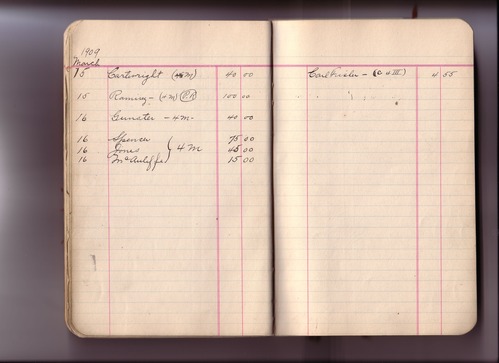 1909
March
15 Cartwright (4M) 40 00
15 Ramsey - (4M) (P.R) 100 00
16 Gunster - 4M - 40 00
16 Spencer 75 00
16 Jones } 4M 45 00
16 McAuliffe 15 00
Carl - ( III) 4 55